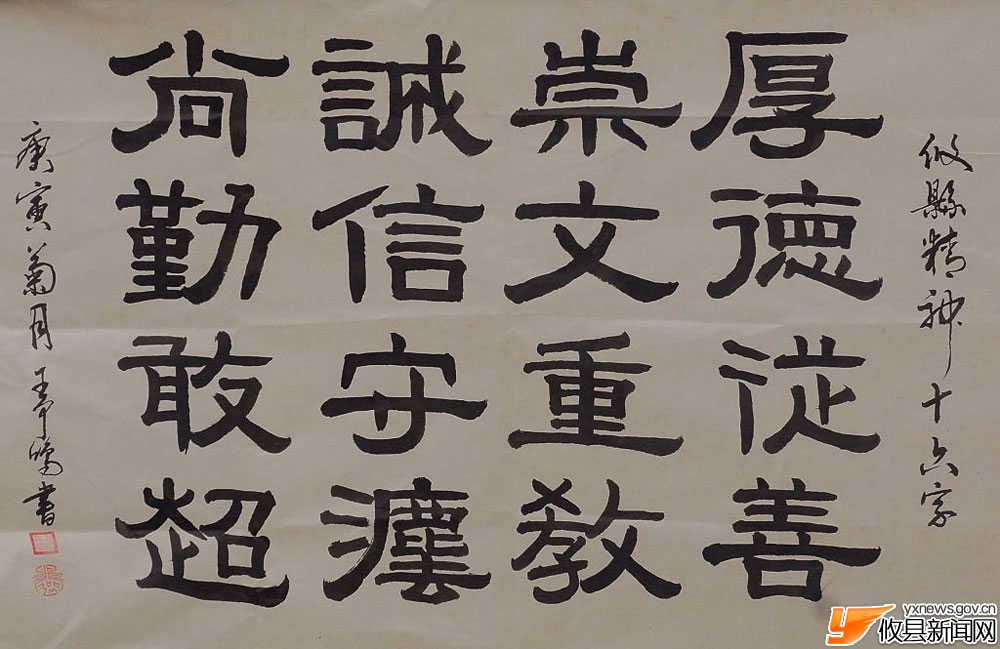 攸縣精神十六字
厚德從善
崇文重教
誠信守灋
尚勤敢超
庚寅菊月王書
yxnews.gov.cn
攸县新闻网